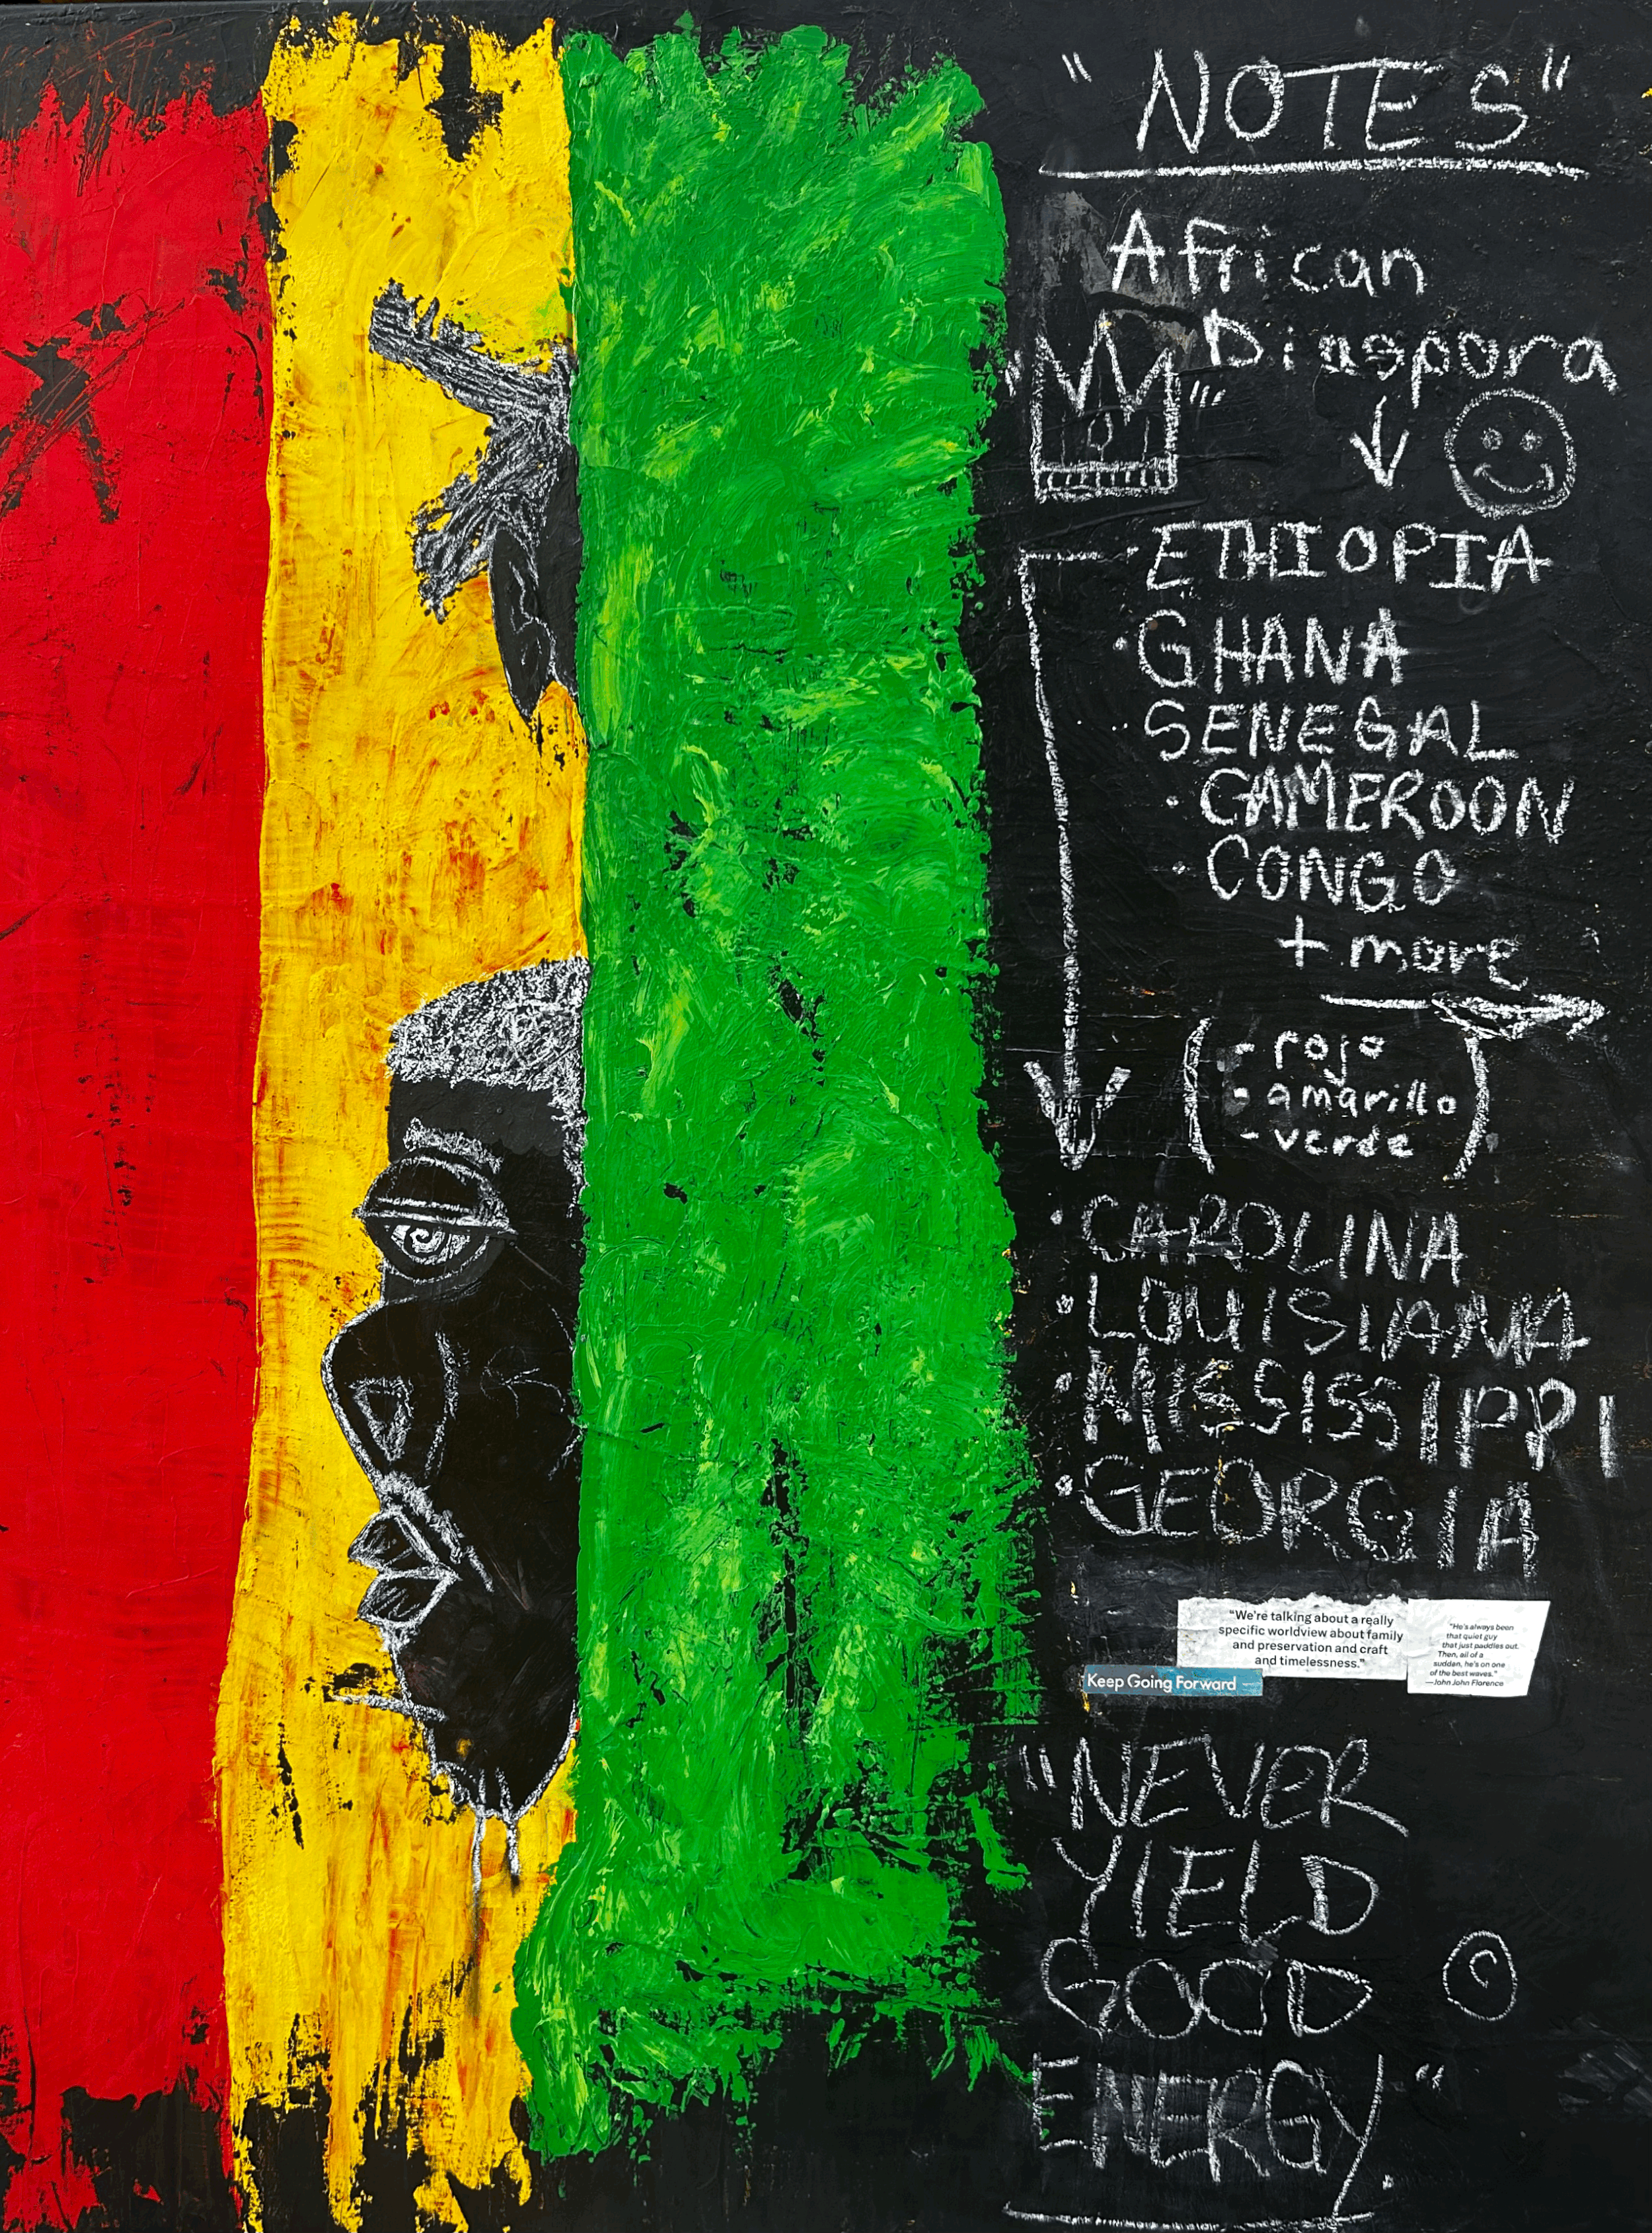 "NOTES"
African
Diaspora
ETHIOPIA
• GHANA
• SENEGAL
• CAMEROON
• CONGO
+ more
( - rojo
- amarillo
- verde )
• CAROLINA
• LOUISIANA
• MISSISSIPPI
• GEORGIA
"We're talking about a really
specific worldview about family
and preservation and craft
and timelessness."
"He's always been
that quiet guy
that just paddles out.
Then, all of a
sudden, he's on one
of the best waves."
—John John Florence
Keep Going Forward
"NEVER
YIELD
GOOD
ENERGY."